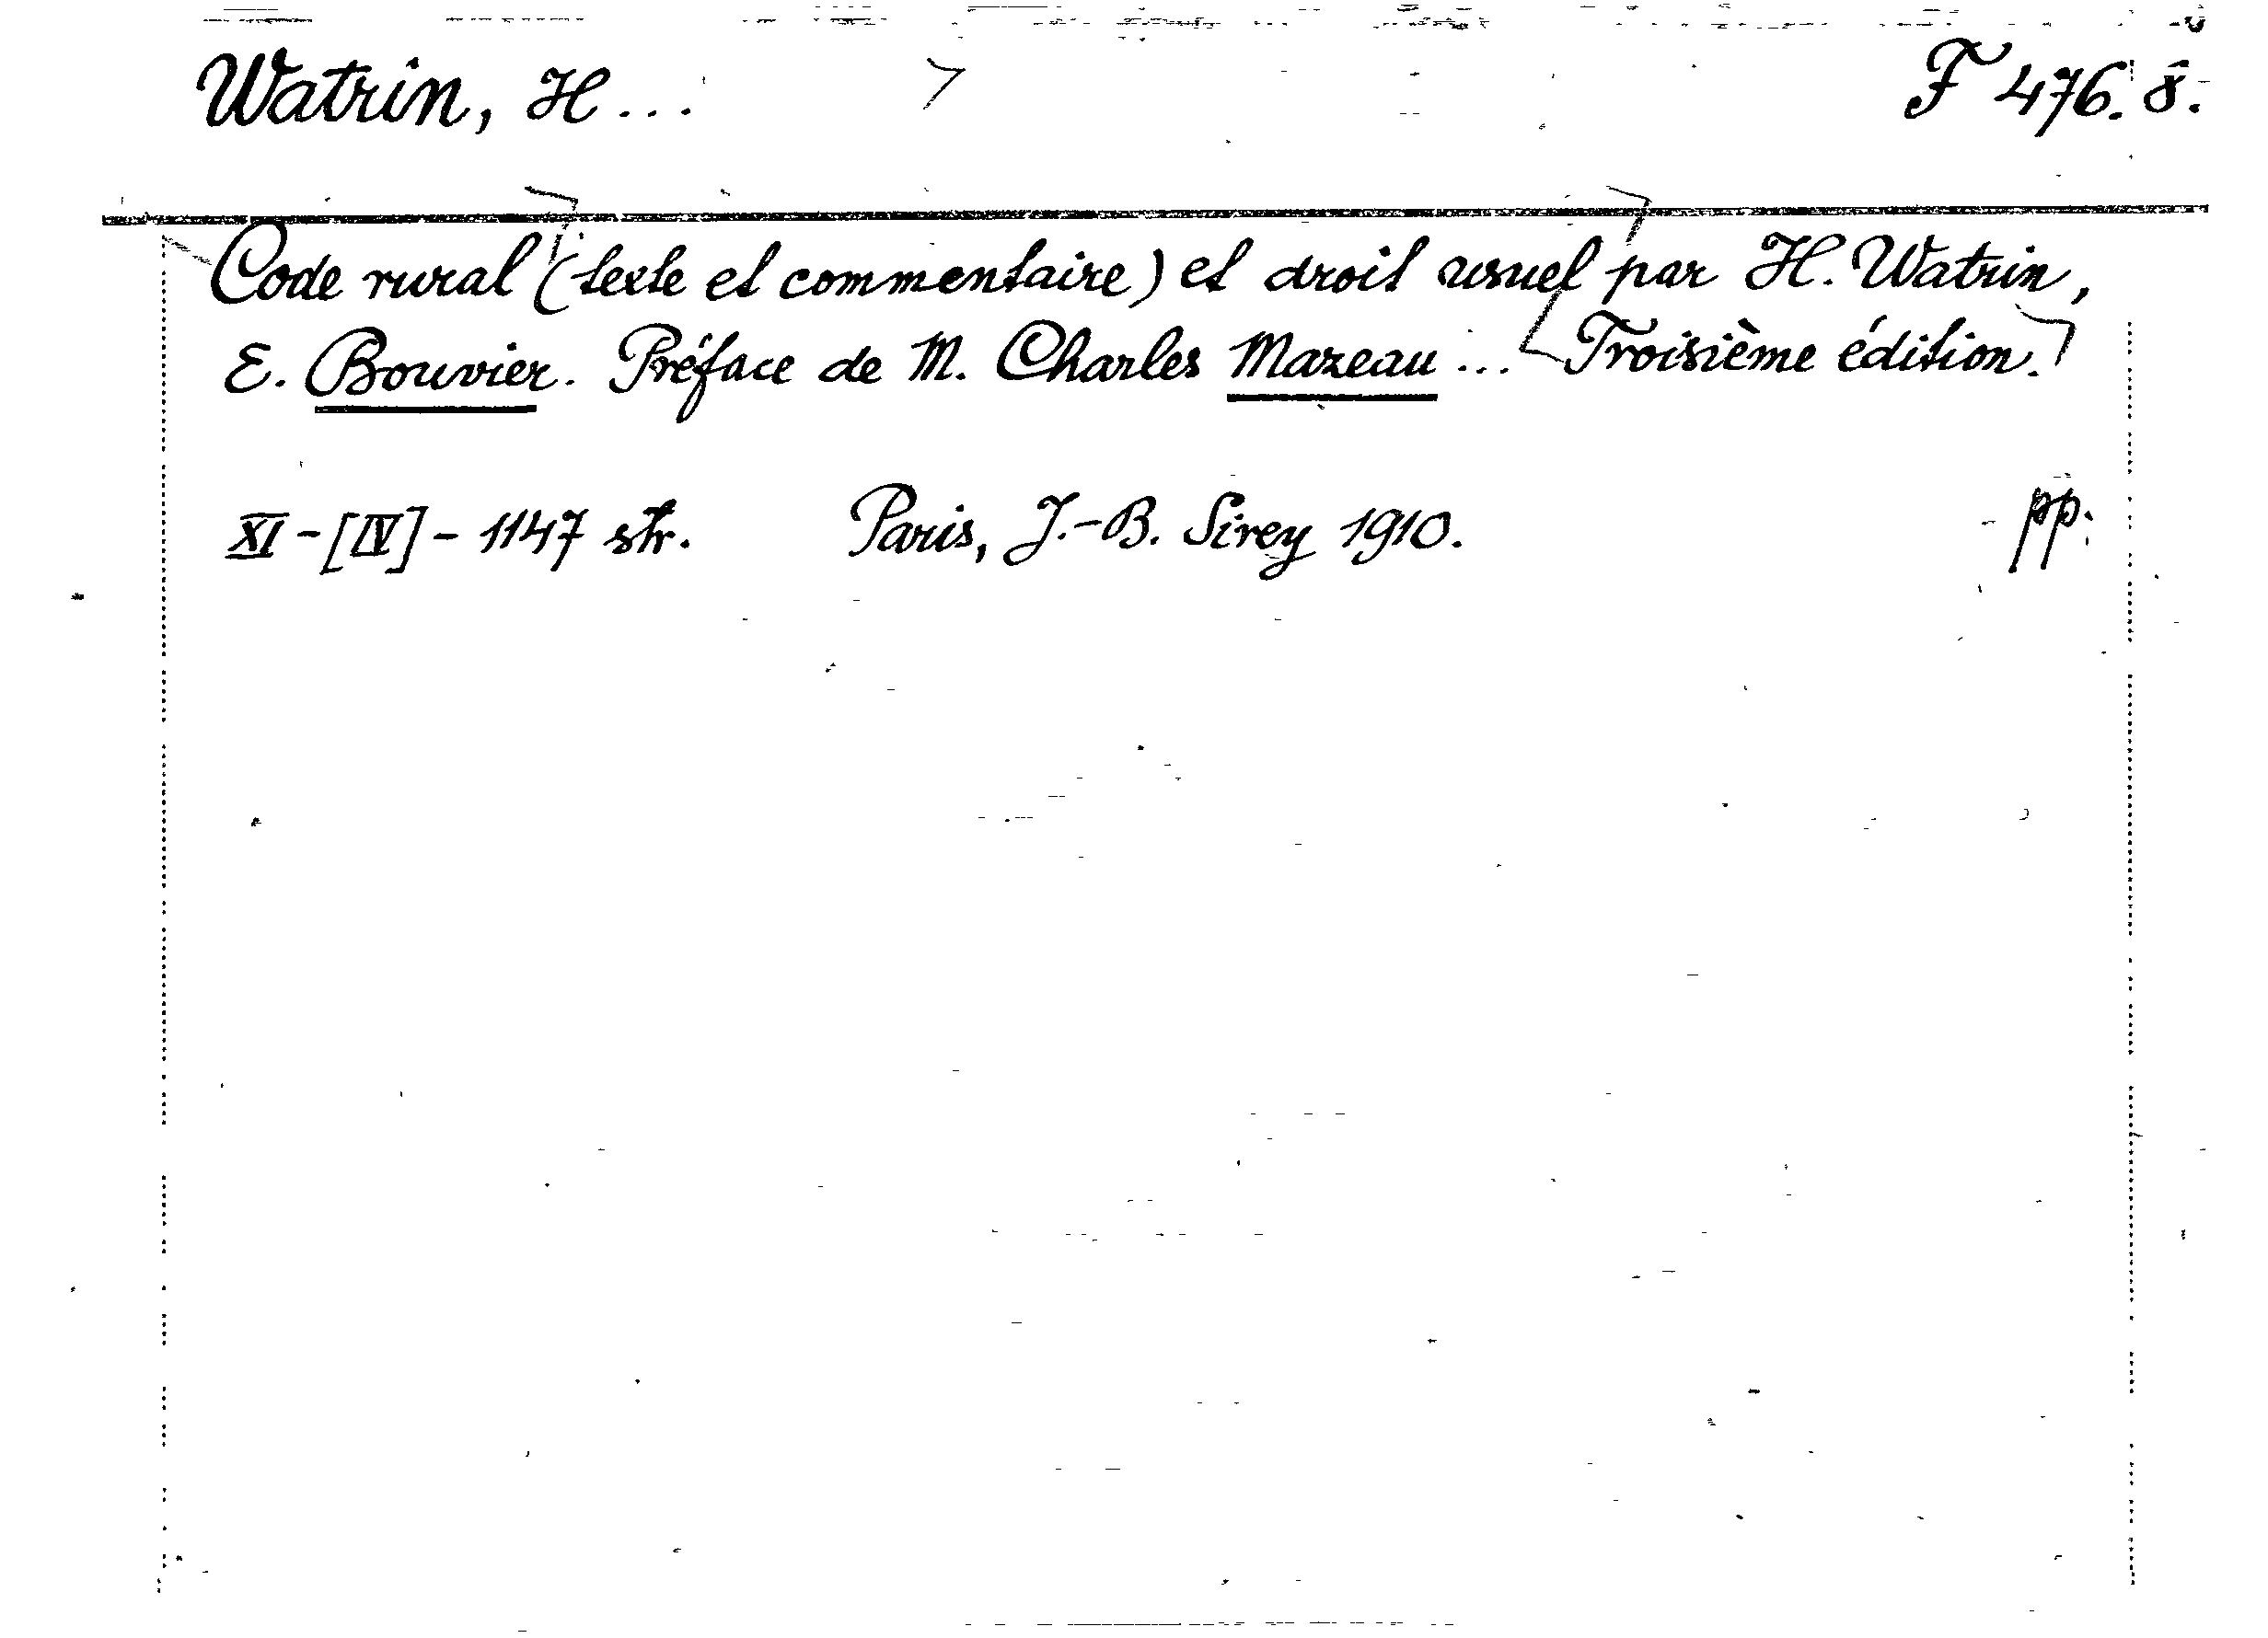 Watrin, H... F 476. 8.
Code rural (texte et commentaire) et droit usuel par H. Watrin,
E. Bouvier. Préface de M. Charles Mazeau ... Troisième édition.
XI-[IV]-1147 str. Paris, J.-B. Sirey 1910. pp.